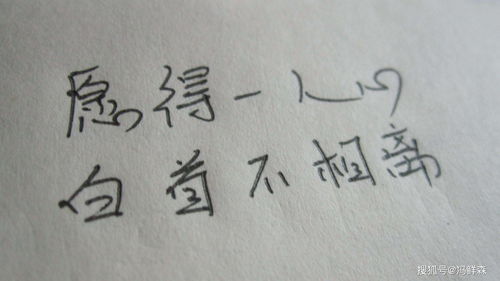 愿得一人心
白首不相离
搜狐号@冯鲜森